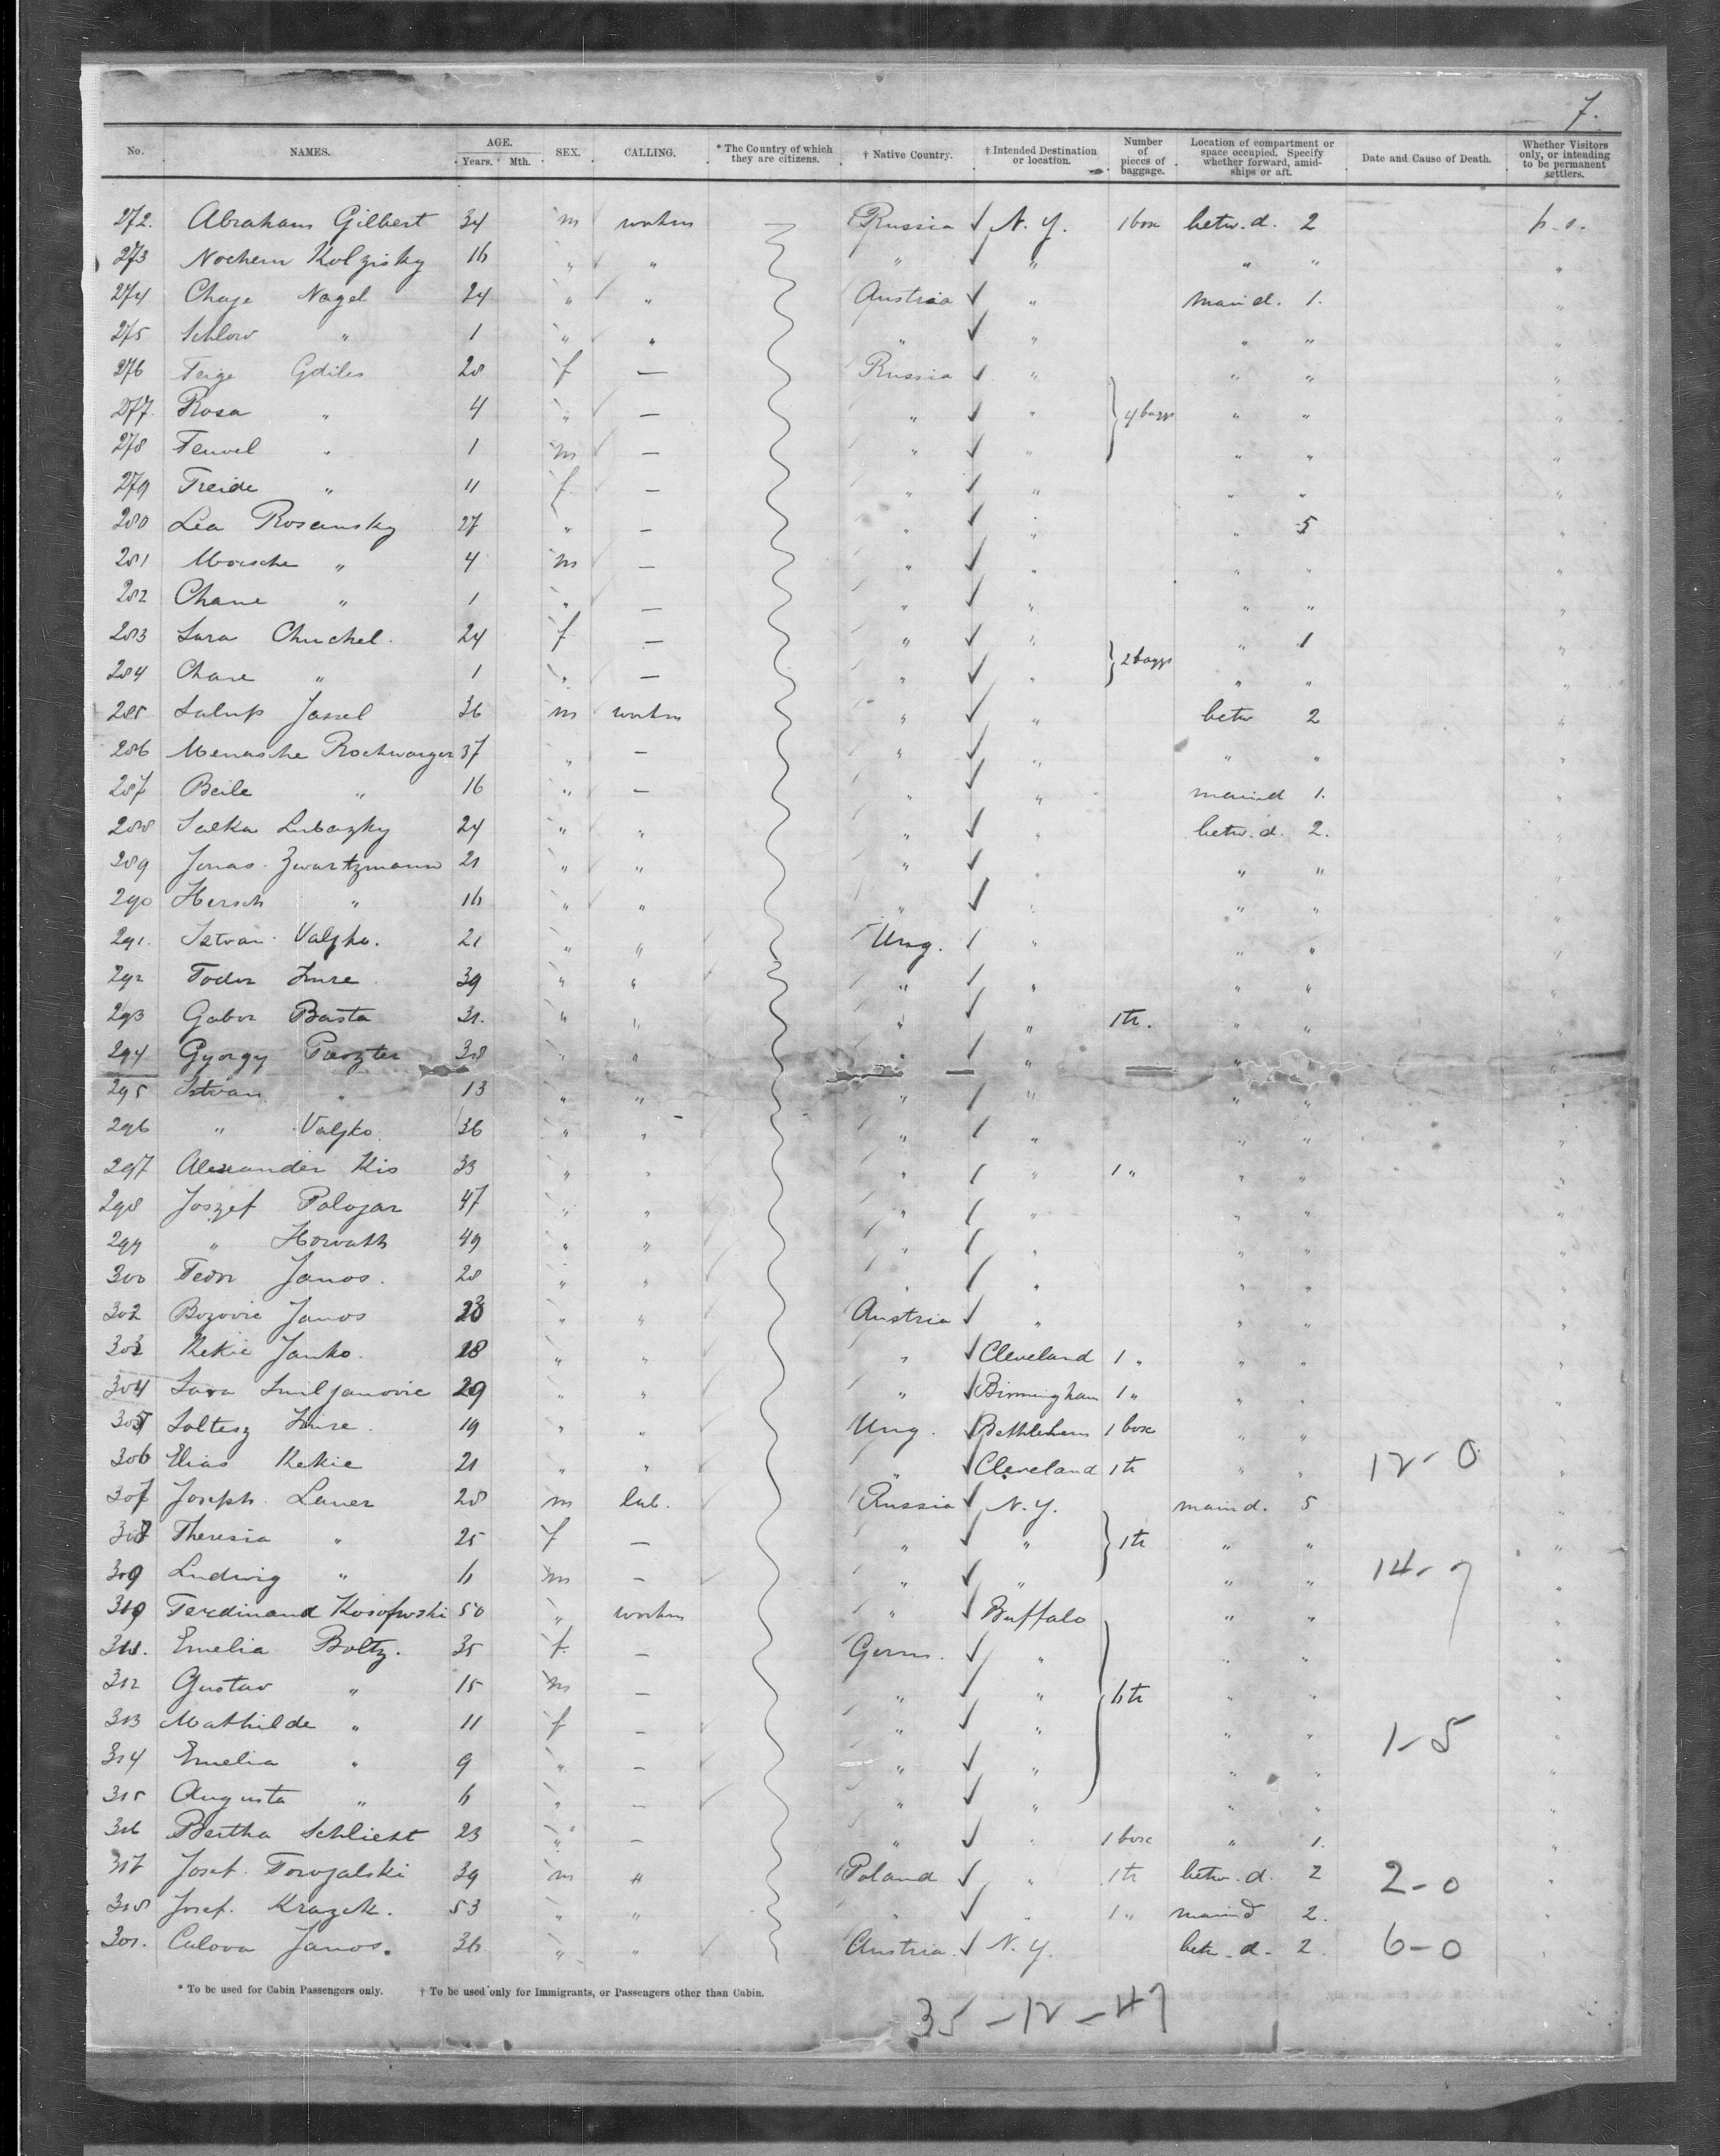 7.
No. NAMES. AGE. Years. Mth. SEX. CALLING. * The Country of which they are citizens. † Native Country. † Intended Destination or location. Number of pieces of baggage. Location of compartment or space occupied. Specify whether forward, amidships or aft. Date and Cause of Death. Whether Visitors only, or intending to be permanent settlers.
272. Abraham Gilbert 34 m workm Russia N. Y. 1 box betw. d. 2 p. s.
273 Nochem Kolzisky 16 " " " " " " "
274 Chaje Nagel 24 " " Austria " main d. 1. "
275 Schlow " 1 " " " " " " "
276 Feige Gdiles 28 f — Russia " " " "
277. Rosa " 4 " — " " 4 baggs " " "
278 Feuvel " 1 m — " " " " "
279 Freide " 11 f — " " " " "
280 Lea Rosansky 27 " — " " " 5 "
281 Morsche " 4 m — " " " " "
282 Chane " 1 " — " " " " "
283 Sara Chuchel. 24 f — " " " 1 "
284 Chane " 1 " — " " 2 baggs " " "
285 Salup Jassel 36 m workm " " betw 2 "
286 Menasche Rochwarger 37 " — " " " " "
287 Beile " 16 " — " " main d 1. "
288 Salka Lubazky 24 " " " " betw. d. 2. "
289 Jonas Zwartzmann 21 " " " " " " "
290 Hersch " 16 " " " " " " "
291. Istvan Valjko. 21 " " Ung. " " " "
292 Todor Imre 39 " " " " " " "
293 Gabor Basta 31. " " " " 1 tr. " " "
294 Gyorgy Preszter 38 " " " " " "
295 Istvan " 13 " " " " " " "
296 " Valjko. 36 " " " " " " "
297 Alexander Kis 33 " " " " 1 " " " "
298 Joszef Palojar 47 " " " " " " "
299 " Horvath 49 " " " " " " "
300 Fedor Janos. 28 " " " " " " "
302 Bozovic Janos " " Austria " " " "
303 Kekic Janko. 28 " " " Cleveland 1 " " " "
304 Sava Smiljanovic 29 " " " Birmingham 1 " " " "
305 Soltesz Imre. 19 " " Ung. Bethlehem 1 box " " "
306 Elias Kekic 21 " " " Cleveland 1 tr " " 12-0 "
307 Joseph Laner 28 m lab. Russia N. Y. main d. 5 "
308 Theresia " 25 f — " " 1 tr " " "
309 Ludwig " 6 m — " " " " 14-7 "
310 Ferdinand 50 " workm " Buffalo " " "
311. Emelia Boltz. 35 f. — Germ. " " " "
312 Gustav " 15 m — " " 6 tr " " "
313 Mathilde " 11 f — " " " " 1-5 "
314 Emelia " 9 " — " " " " "
315 Augusta " 6 " — " " " " "
316 Bertha Schlicht 23 " — " " 1 box " 1. "
317 Josef Towjalski 39 m " Poland " 1 tr betw. d. 2 2-0 "
318 Josef. Krazek. 53 " " " " 1 " main d 2. "
301. Culova Janos. 36 " " Austria. N. Y. betw. d. 2. 6-0 "
* To be used for Cabin Passengers only. † To be used only for Immigrants, or Passengers other than Cabin.
35-12-47